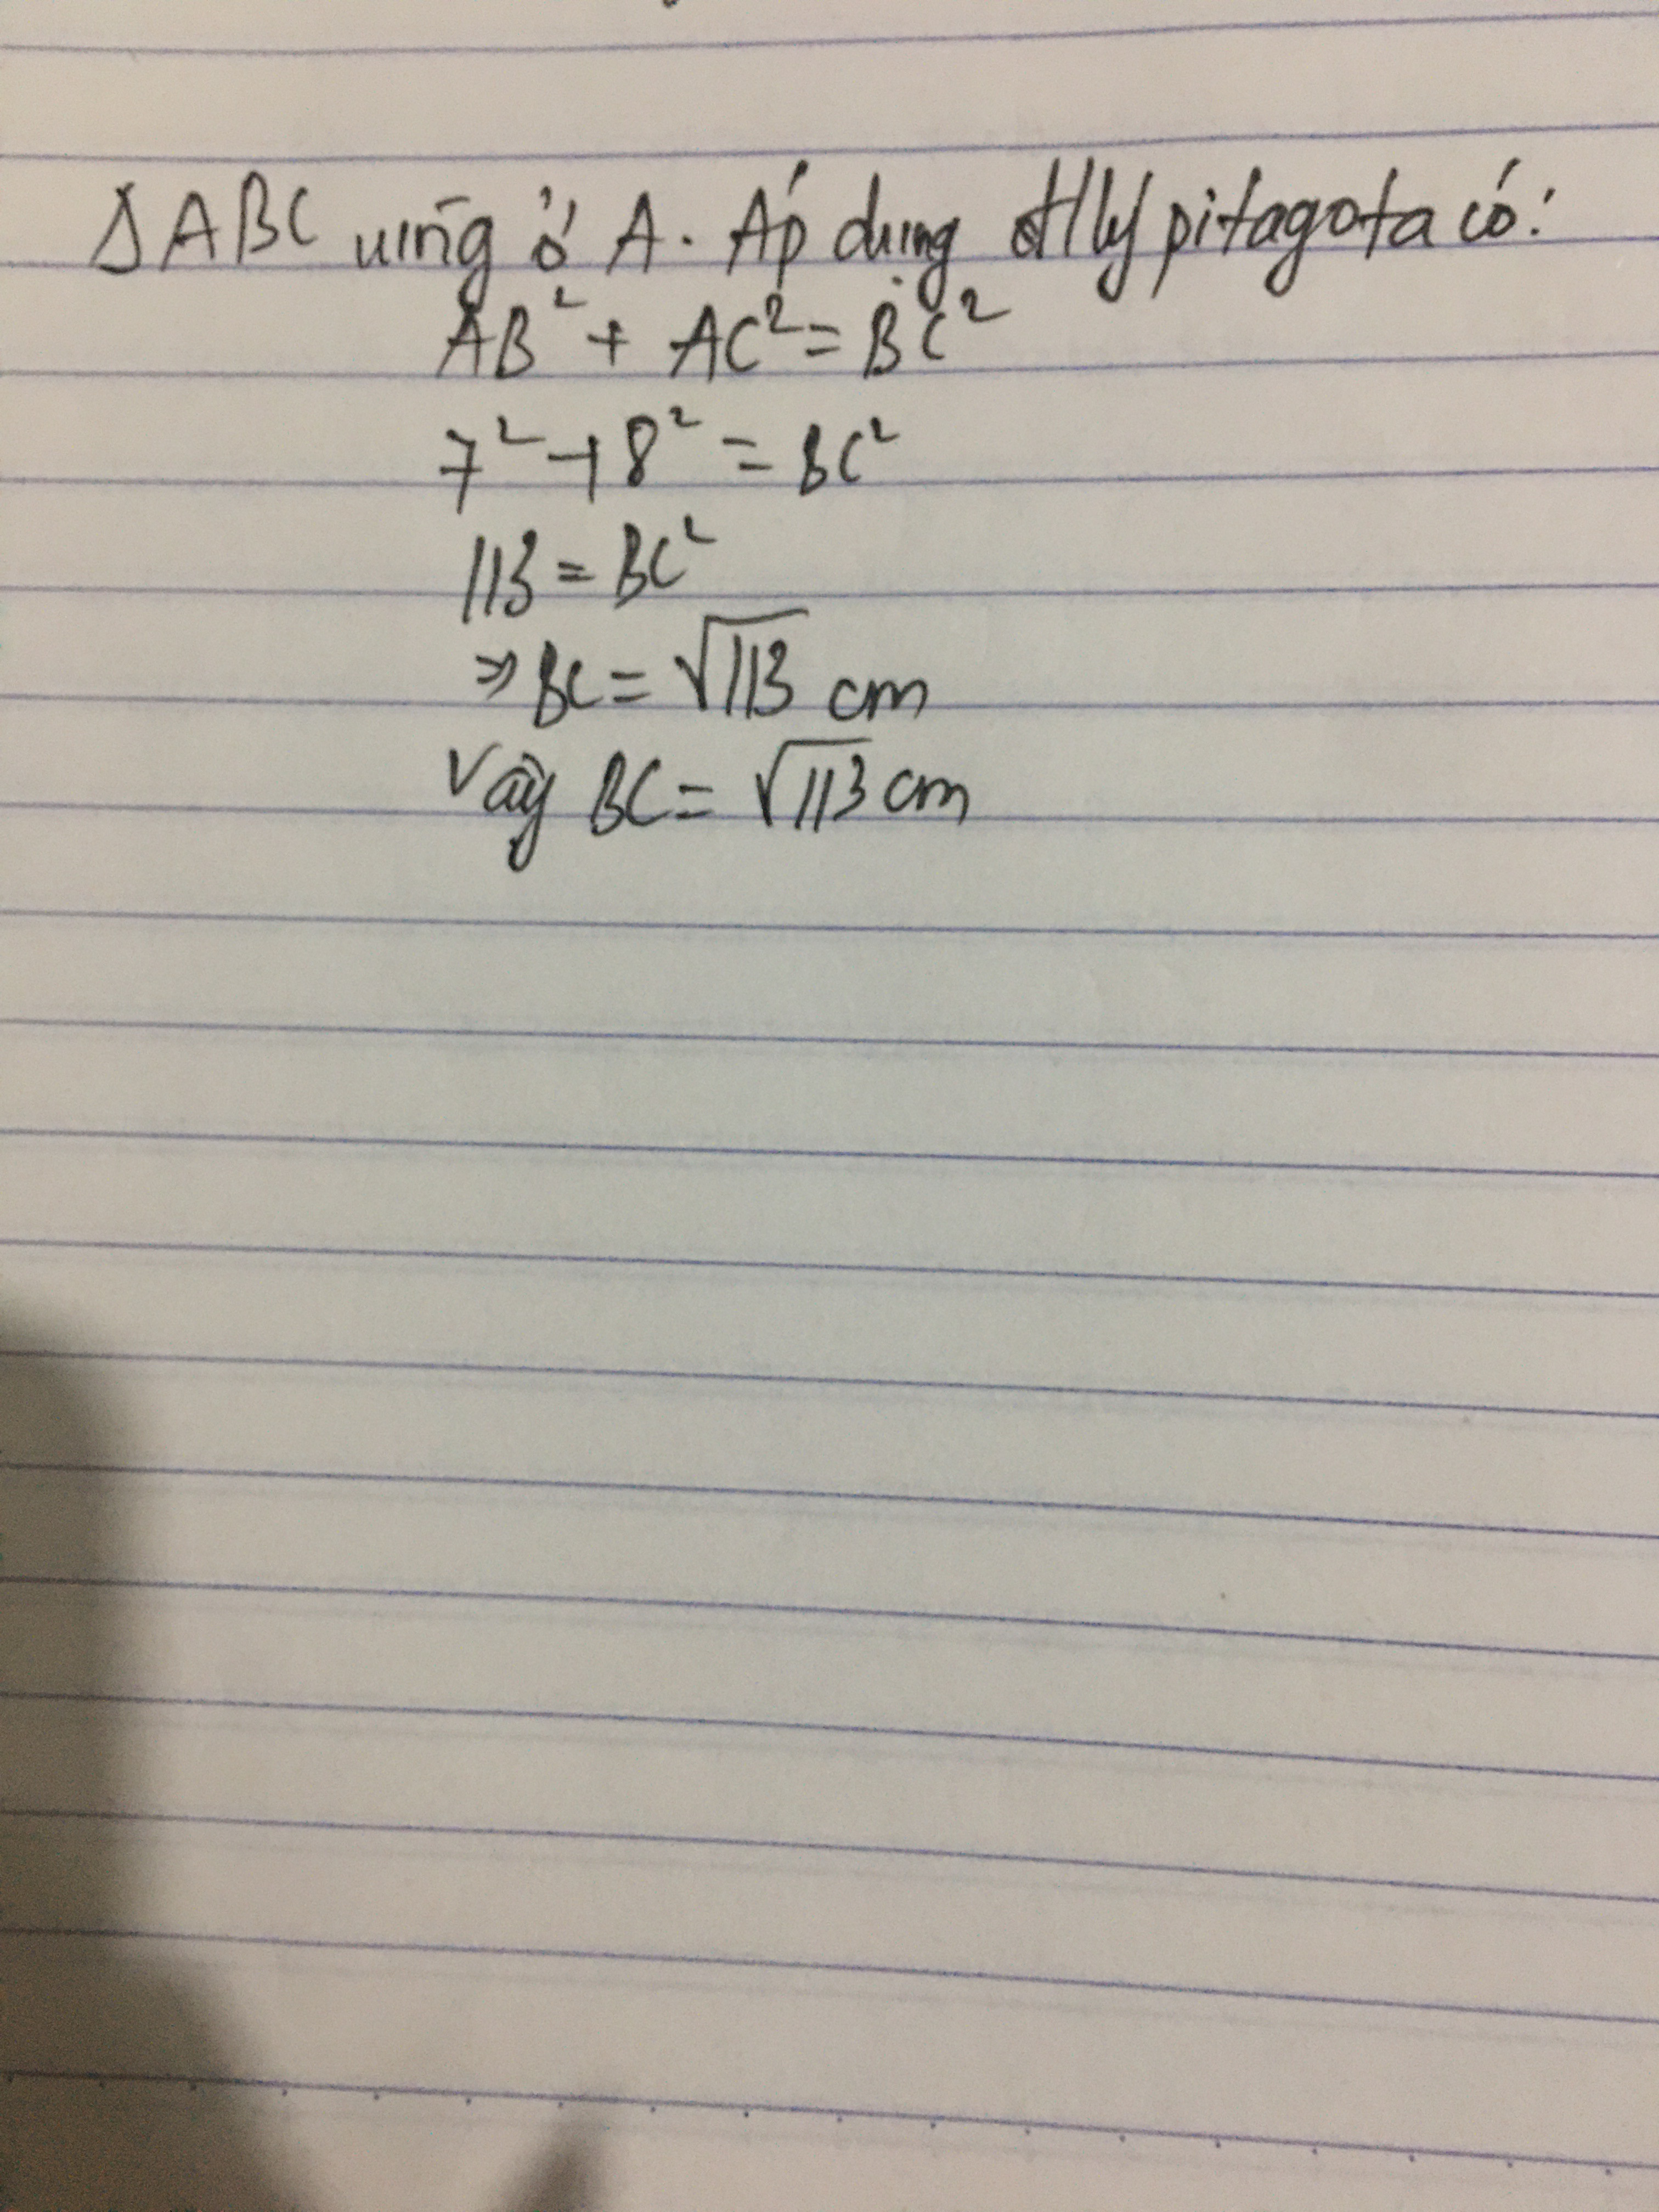 Δ ABC uīng ở A. Áp dụng đlly pitagota có:
AB² + AC² = BC²
7² + 8² = BC²
113 = BC²
⇒ BC = √113 cm
Vậy BC = √113 cm